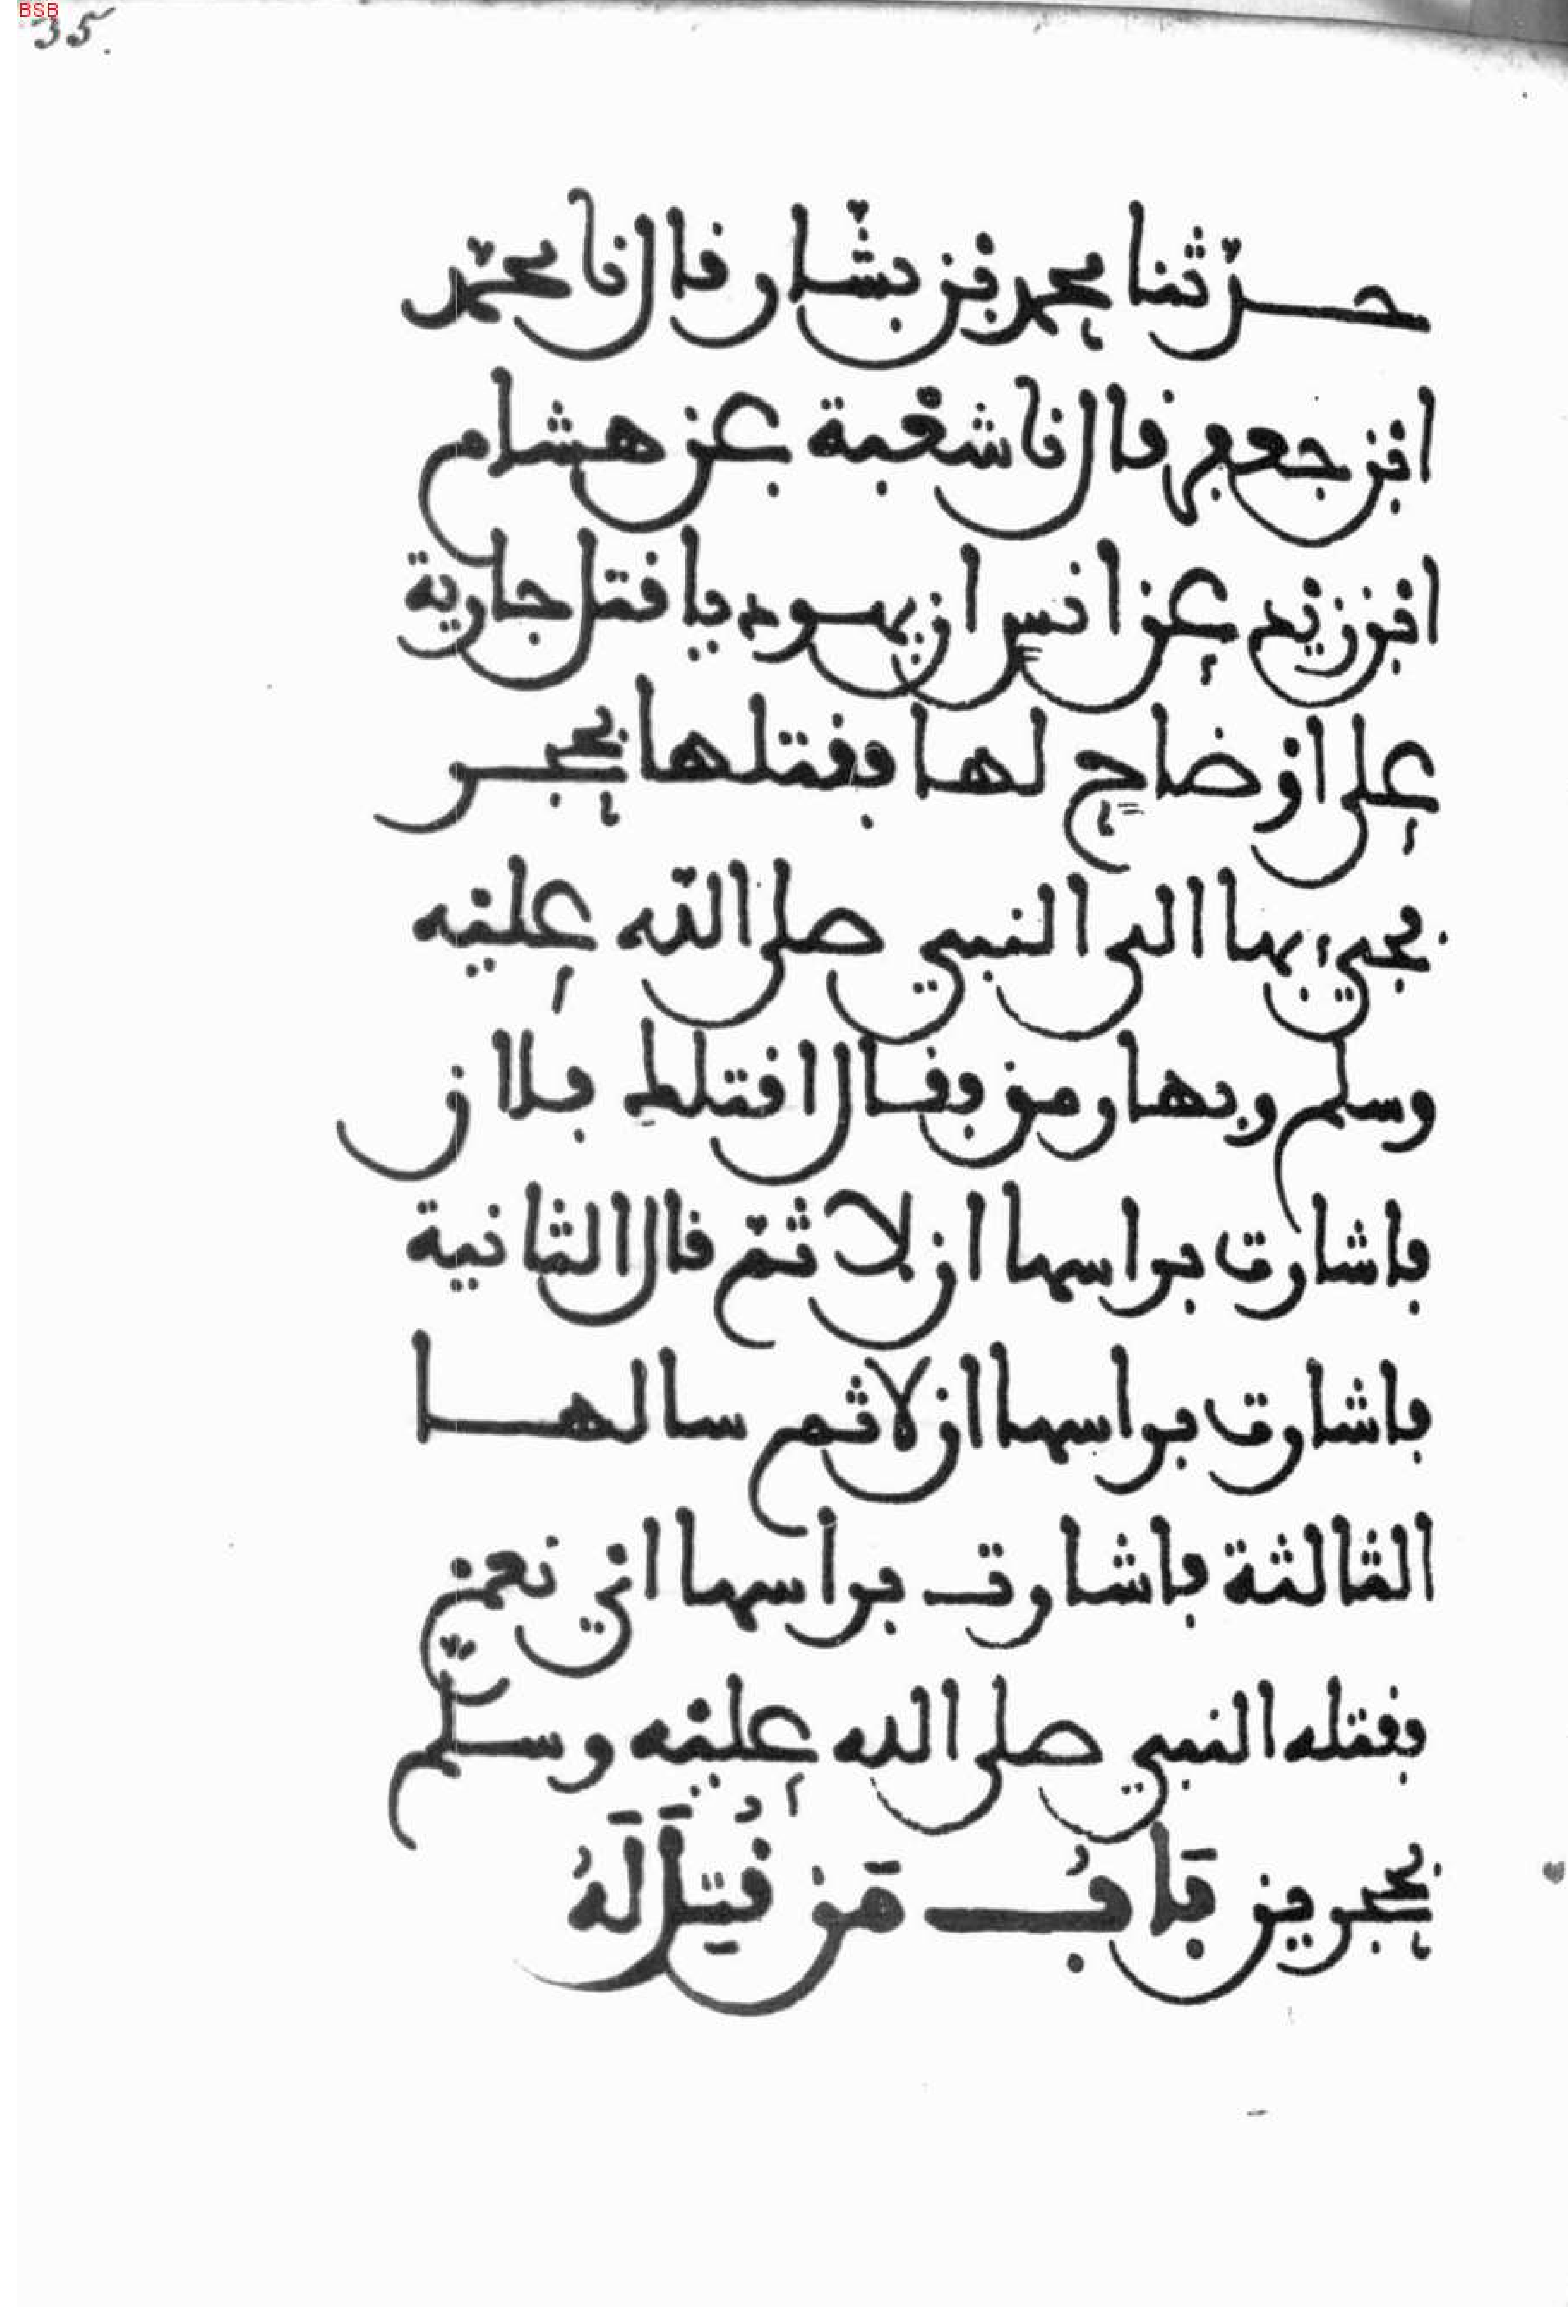 BSB
35.
حدثنا محمد بن بشار قال نا محمد
ابن جعفر قال نا شعبة عن هشام
ابن زيد عن انس ان يهوديا قتل جارية
على اوضاح لها فقتلها بحجر
فجيء بها الى النبي صلى الله عليه
وسلم وبها رمق فقال اقتلك فلان
فاشارت براسها ان لا ثم قال الثانية
فاشارت براسها ان لا ثم سالها
الثالثة فاشارت براسها اي نعم
فقتله النبي صلى الله عليه وسلّم
بحجرين بَابُ مَن قُتِلَ لَهُ